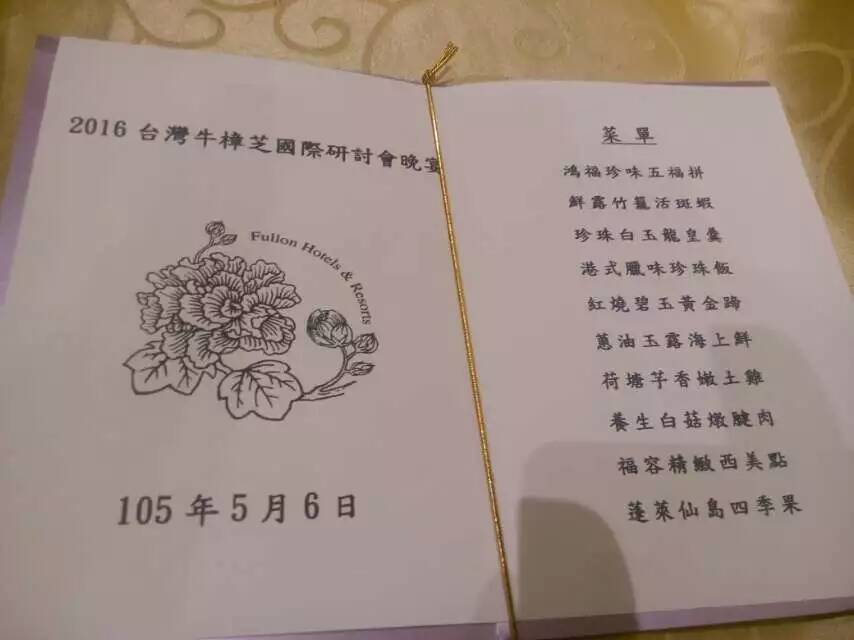 2016 台灣牛樟芝國際研討會晚宴
Fullon Hotels & Resorts
105年5月6日
菜單
鴻福珍味五福拼
鮮露竹籠活斑蝦
珍珠白玉龍皇羹
港式臘味珍珠飯
紅燒碧玉黃金蹄
蔥油玉露海上鮮
荷塘芋香嫩土雞
養生白菇燉腱肉
福容精緻西美點
蓬萊仙島四季果